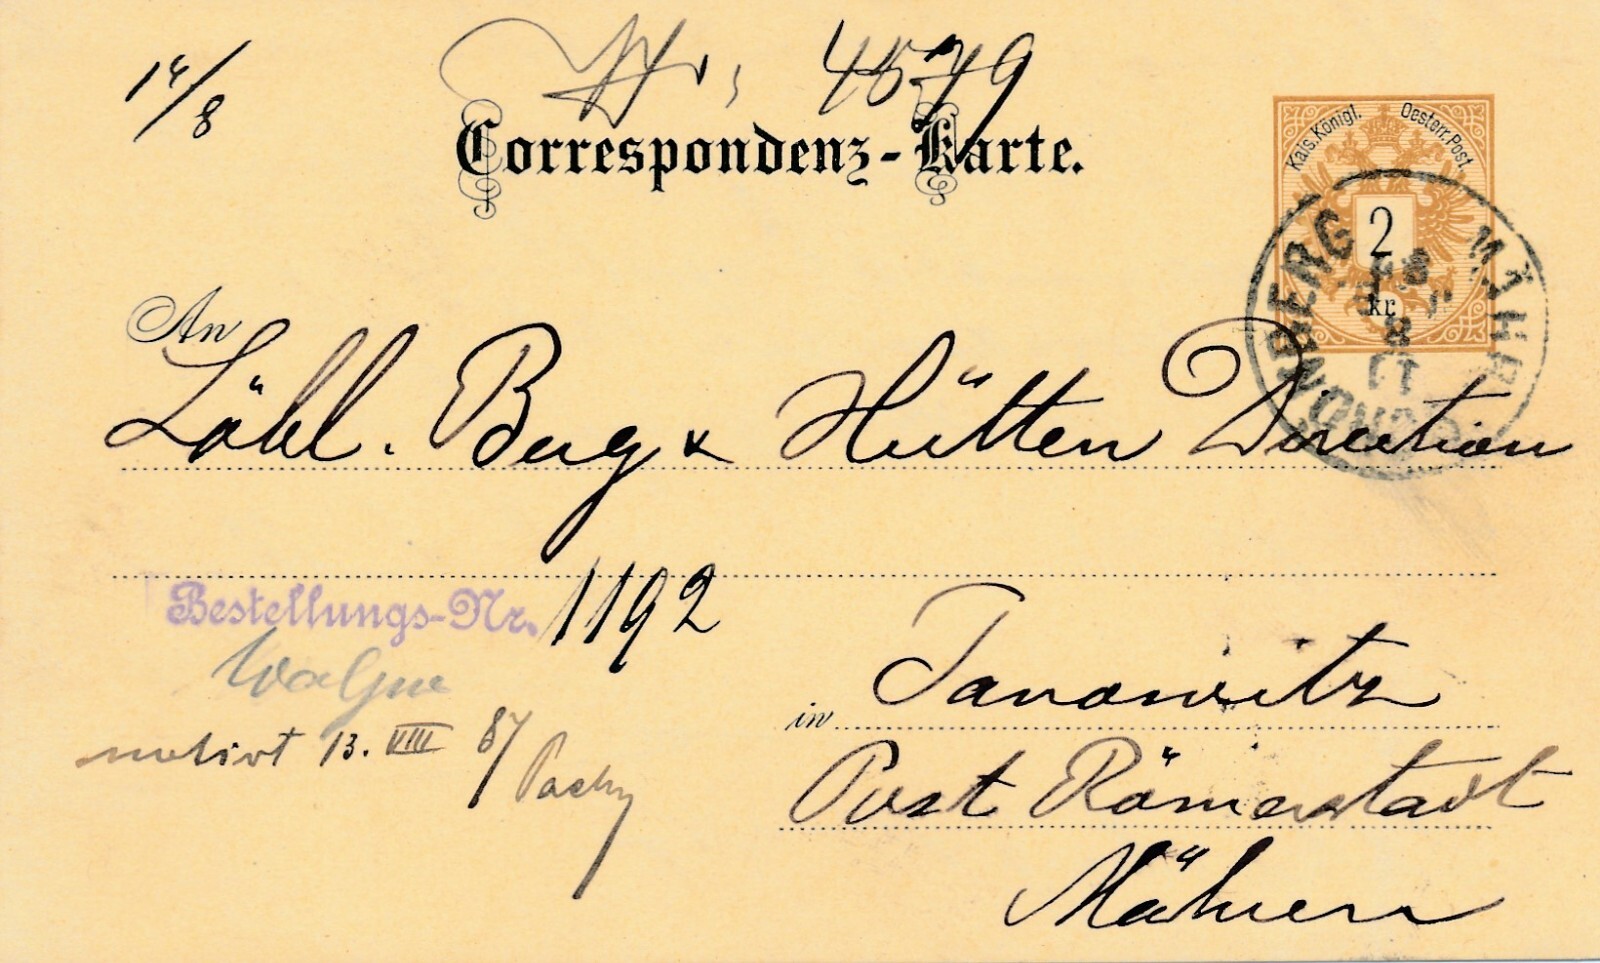 14/8
Nr. 4579
Correspondenz-Karte.
Kais. Königl. Oesterr. Post
2
kr.
MÄHR SCHÖNBERG
11
8
An
Löbl. Berg & Hütten Direction
Bestellungs-Nr. 1192
in Janowitz
notirt 13. VIII 87
Post Römerstadt
Mähren